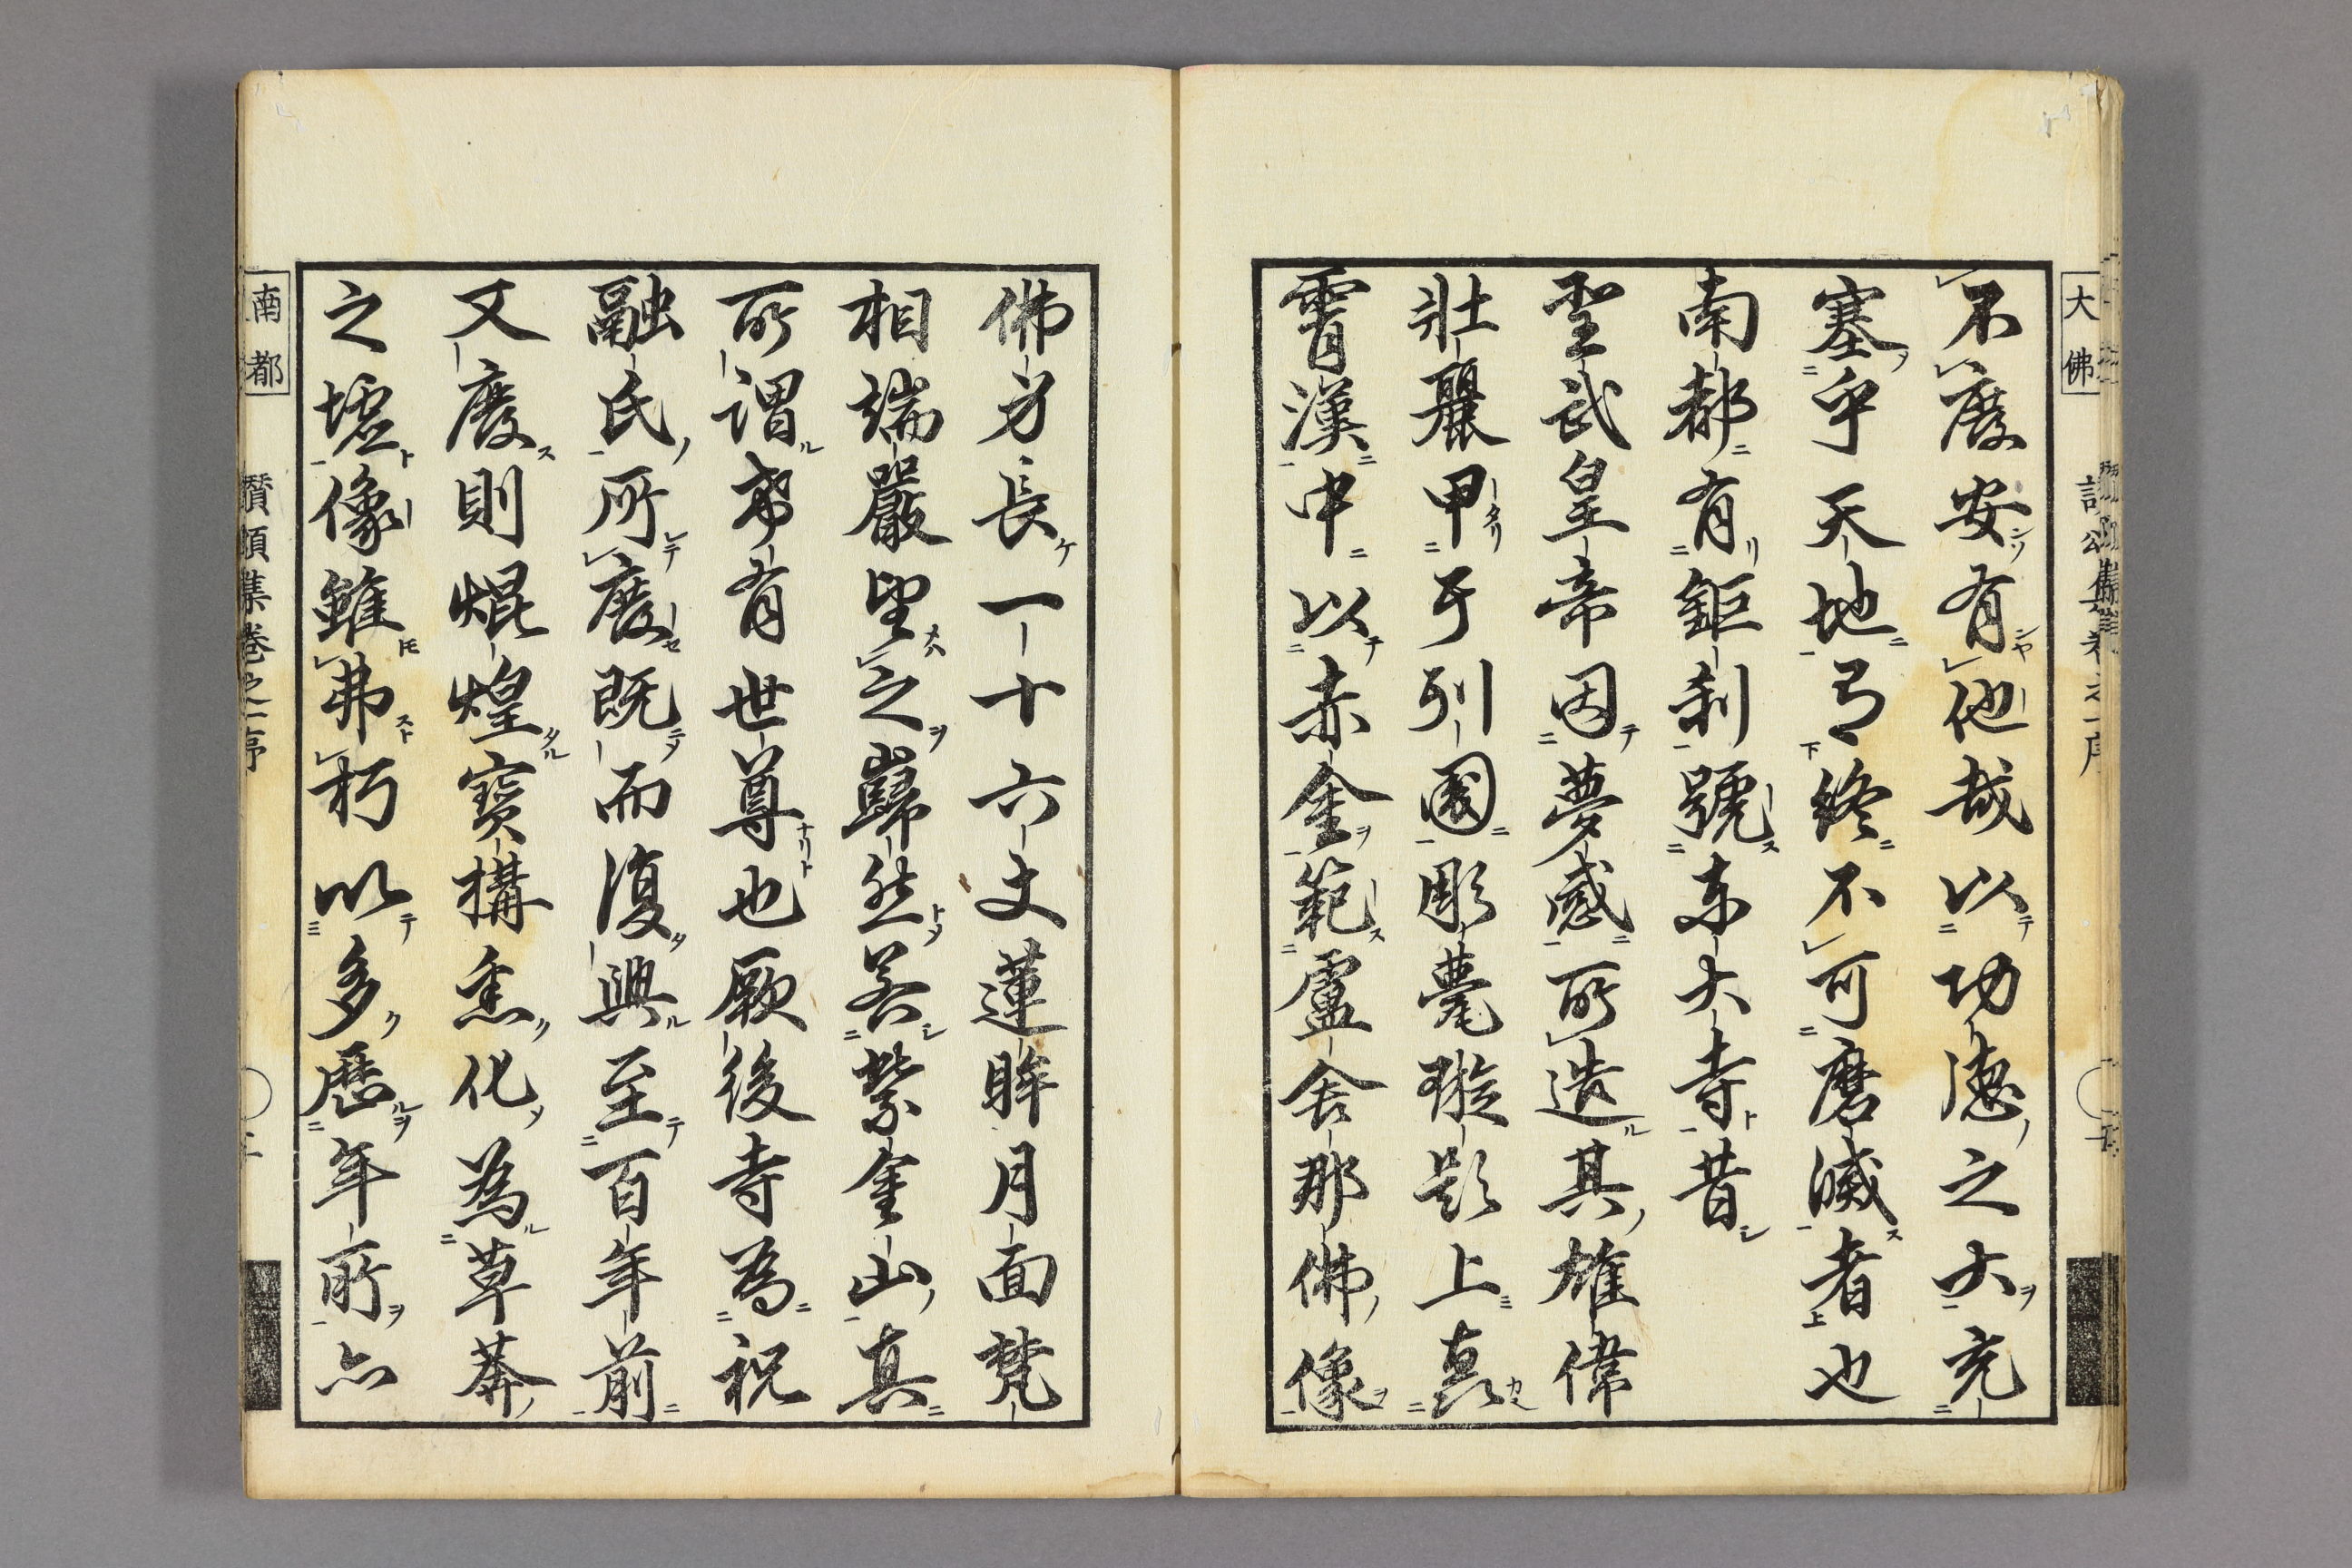 大佛
不廢安有他哉以功德之大充
塞乎天地焉終不可磨滅者也
南都有鉅刹號東大寺昔
聖武皇帝因夢感所造其雄偉
壯麗甲于列國彫甍璇題上
霄漢中以赤金範盧舍那佛像
佛身長一十六丈蓮眸月面梵
相端嚴望之巋然若紫金山真
所謂希有世尊也厥後寺為祝
融氏所廢既而復興至百年前
又廢則焜煌寶構焦化為草莽
之墟像雖弗朽以多歷年所亦
南都
讚頌集卷之一序
二